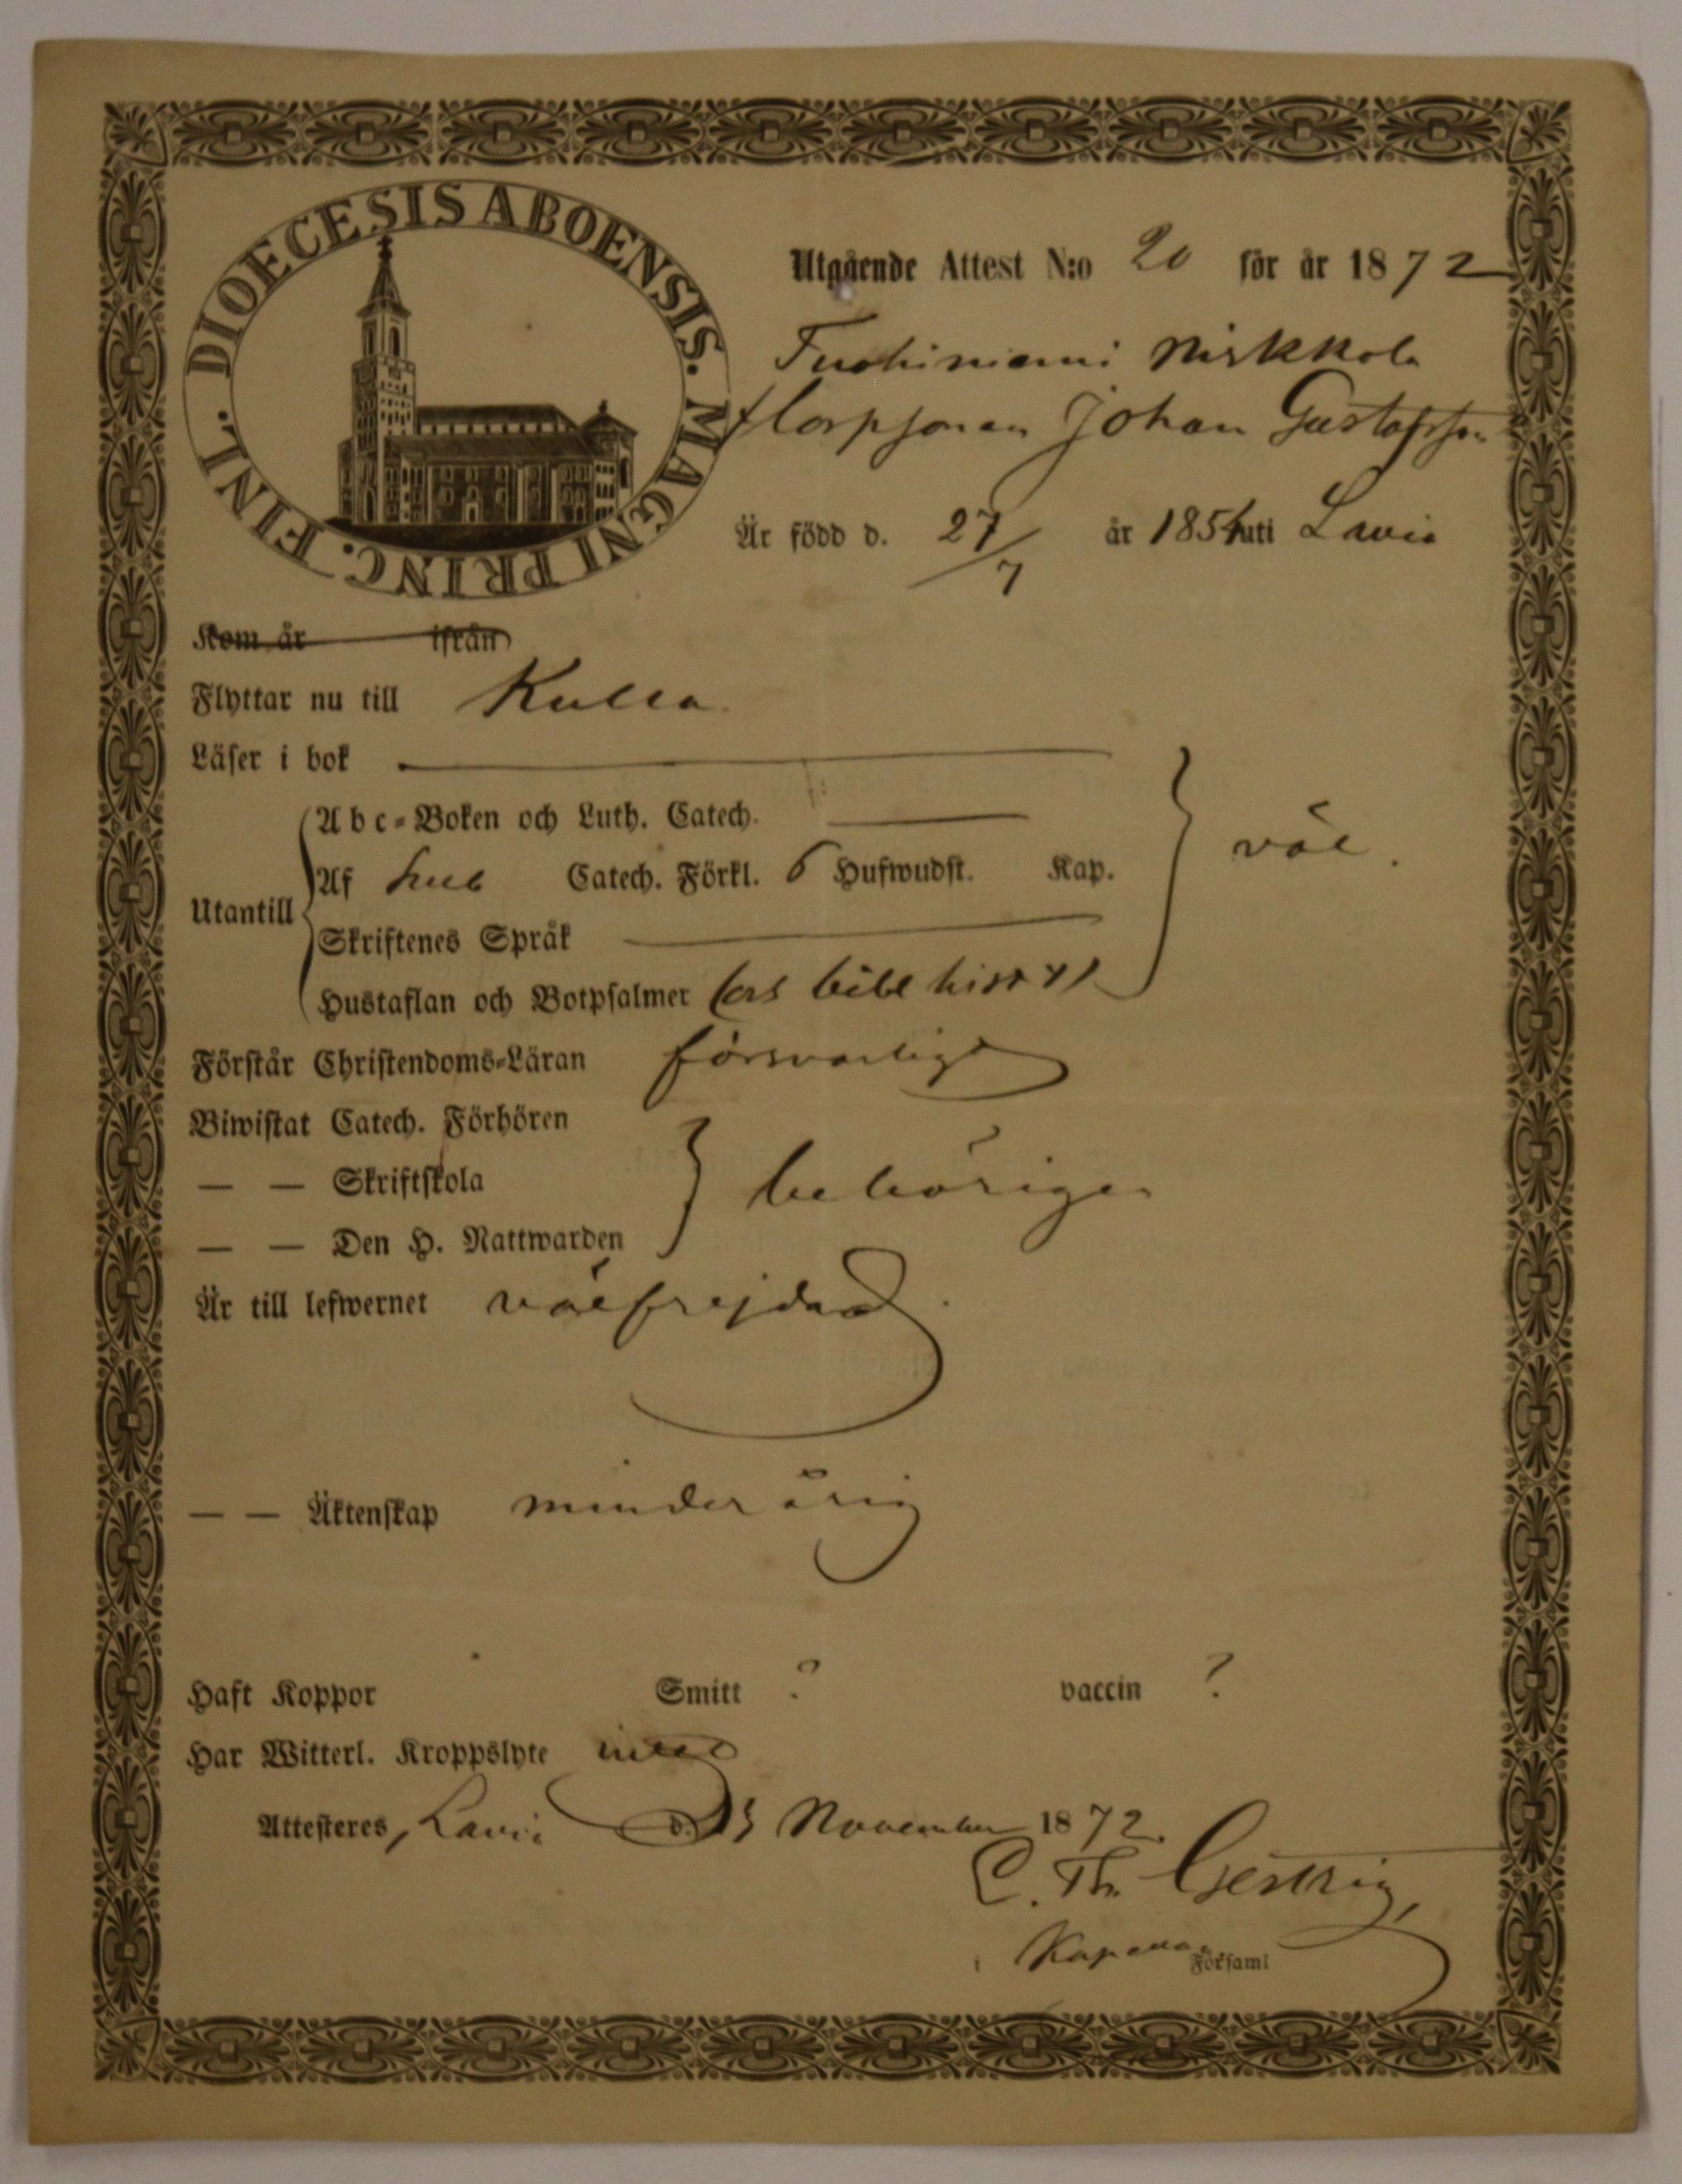 DIOECESIS ABOENSIS. MAGNI PRINC. FINL.
Utgående Attest N:o 20 för år 1872
Niskkola
Torpsonen Johan Gustafsson
Är född d. 27/7 år 1854 uti Lavia
Kom år ifrån
Flyttar nu till Kulla
Läser i bok
Utantill
Abc-Boken och Luth. Catech.
Af Catech. Förkl. 6 Hufwudst. Kap.
väl.
Skriftenes Språk
Hustaflan och Botpsalmer bibl hist
Förstår Christendoms-Läran försvarligt
Biwistat Catech. Förhören
— — Skriftskola
behörigen
— — Den H. Nattwarden
Är till lefwernet välfrejdad.
— — Äktenskap minderårig
Haft Koppor Smitt ? vaccin ?
Har Witterl. Kroppslyte intet
Attesteres, Lavia d. 13 November 1872.
C. Th. Gestrin,
i Kapellan Församl